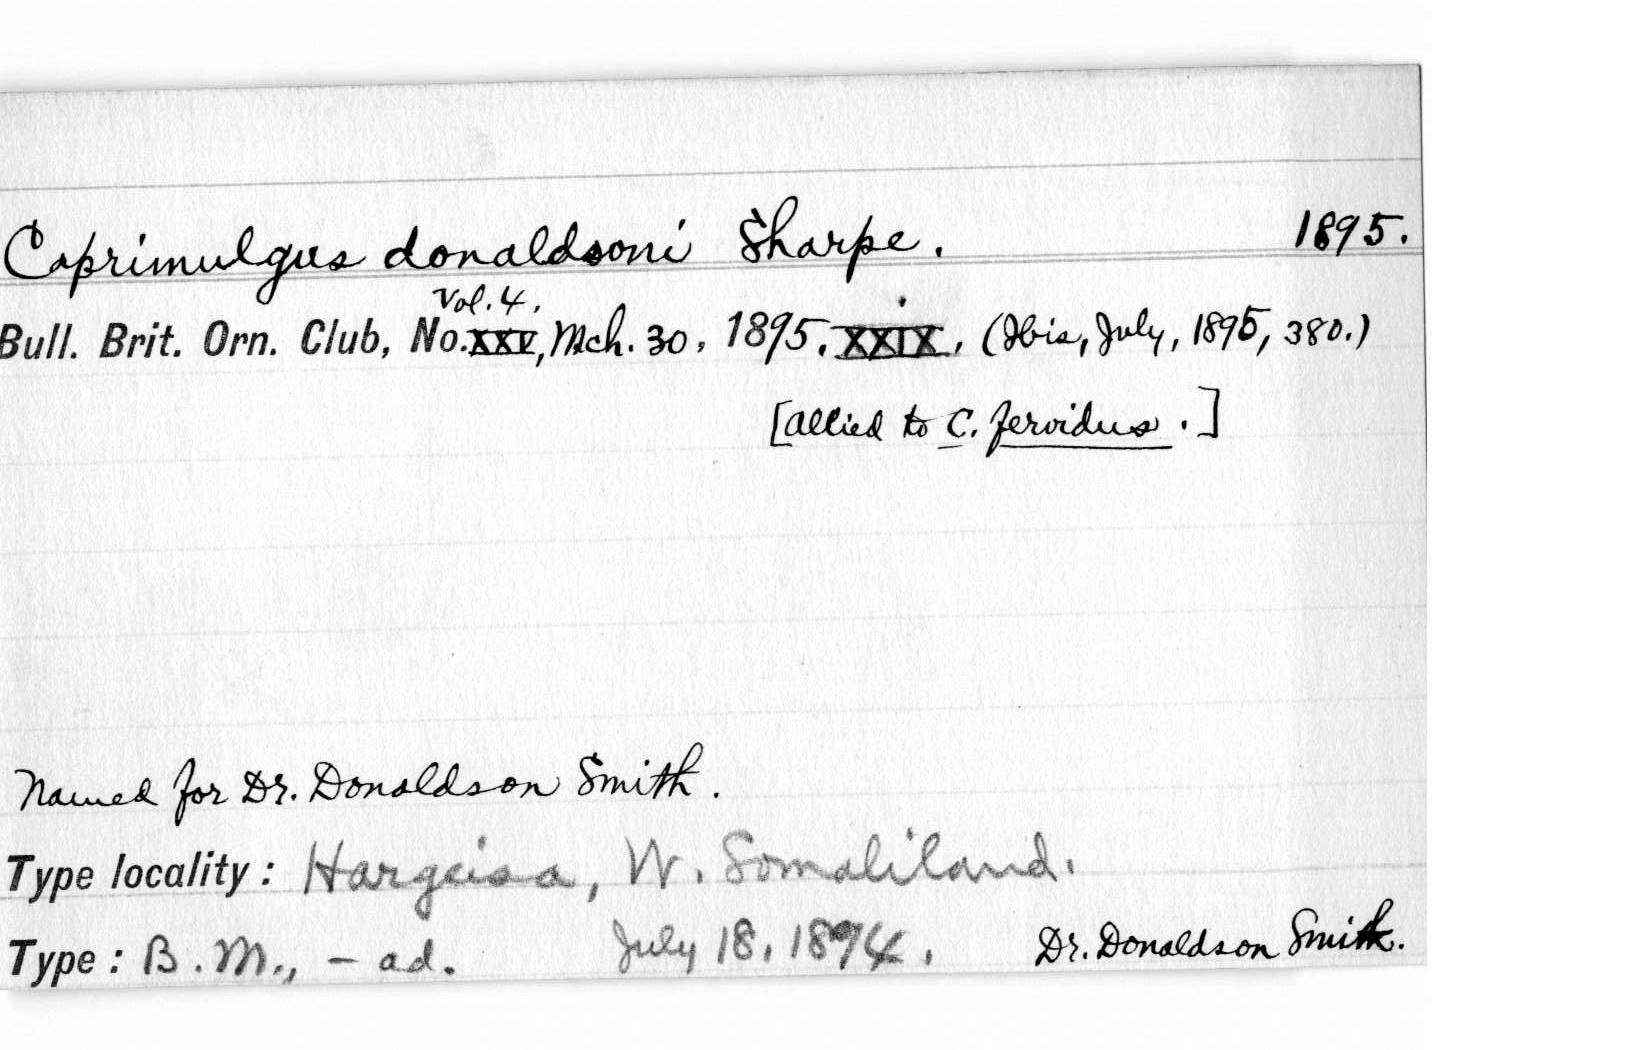 Caprimulgus donaldsoni Sharpe. 1895.
Vol. 4.
Bull. Brit. Orn. Club, No. XXV, Mch. 30, 1895, XXIX, (Ibis, July, 1895, 380.)
[allied to C. fervidus.]
Named for Dr. Donaldson Smith.
Type locality: Hargeisa, W. Somaliland.
Type: B.M., - ad. July 18, 1894. Dr. Donaldson Smith.